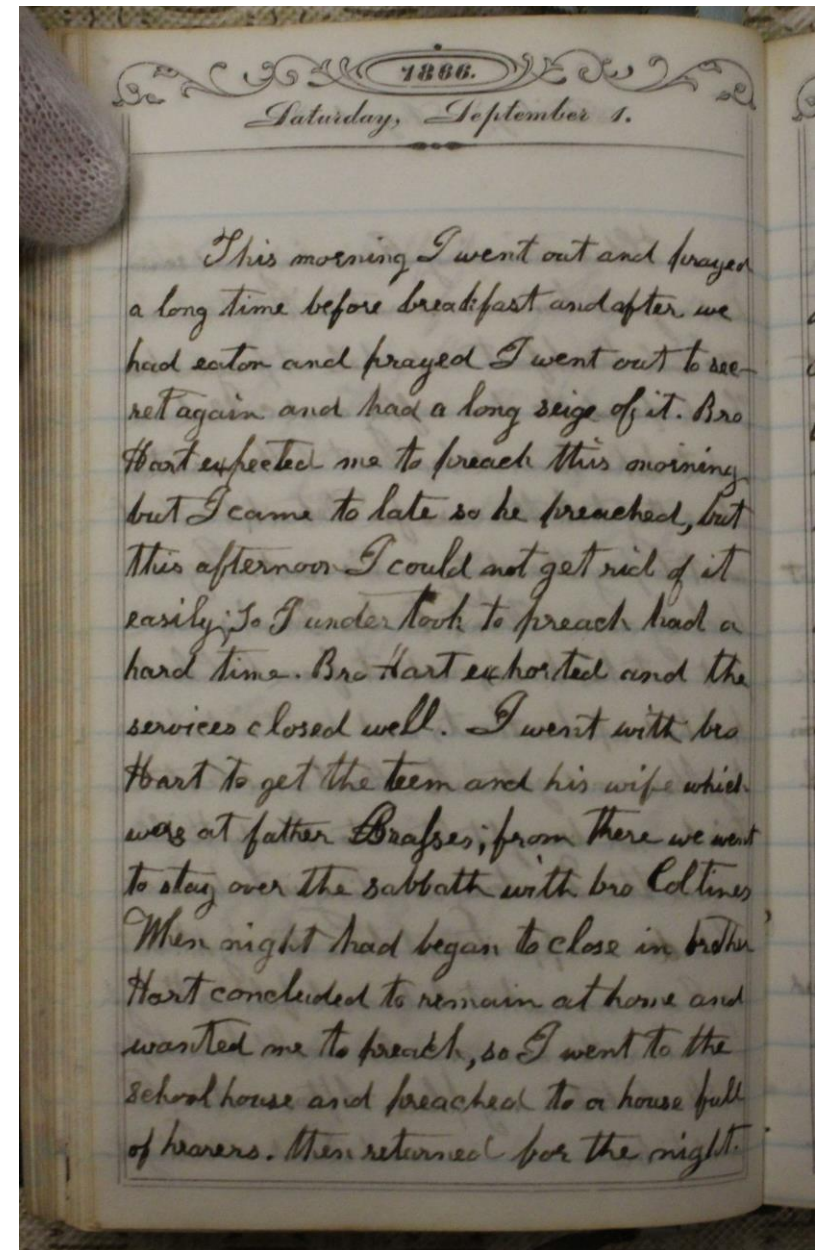 1866.
Saturday, September 1.
This morning I went out and prayed
a long time before breakfast and after we
had eaton and prayed I went out to see-
ret again and had a long seige of it. Bro
Hart expected me to preach this morning
but I came to late so he preached, but
this afternoon I could not get rid of it
easily; So I under took to preach had a
hard time. Bro Hart exhorted and the
services closed well. I went with bro
Hart to get the teem and his wife which
were at father Brasses; from there we went
to stay over the sabbath with bro
When night had began to close in brother
Hart concluded to remain at home and
wanted me to preach, so I went to the
School house and preached to a house full
of hearers. then returned for the night.